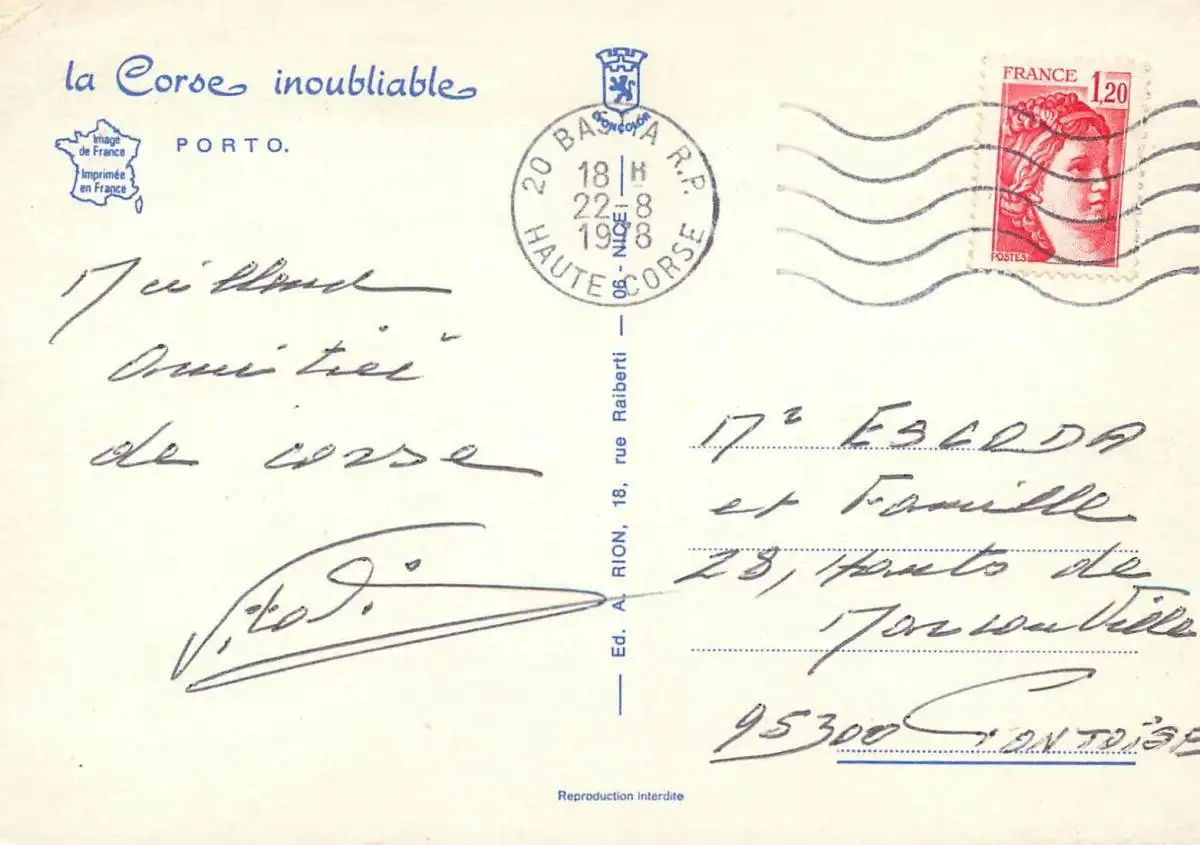 la Corse inoubliable
Image
de France
Imprimée
en France
PORTO.
LYONCOLOR
20 BASTIA R.P.
18 H
22-8
1978
HAUTE-CORSE
FRANCE 1,20
POSTES
amitié
de corse
Ed. A. RION, 18, rue Raiberti — 06 - NICE
Mr ESCODA
et Famille
28, Hauts de
MarcouVille
95300 PONTOISE
Reproduction interdite